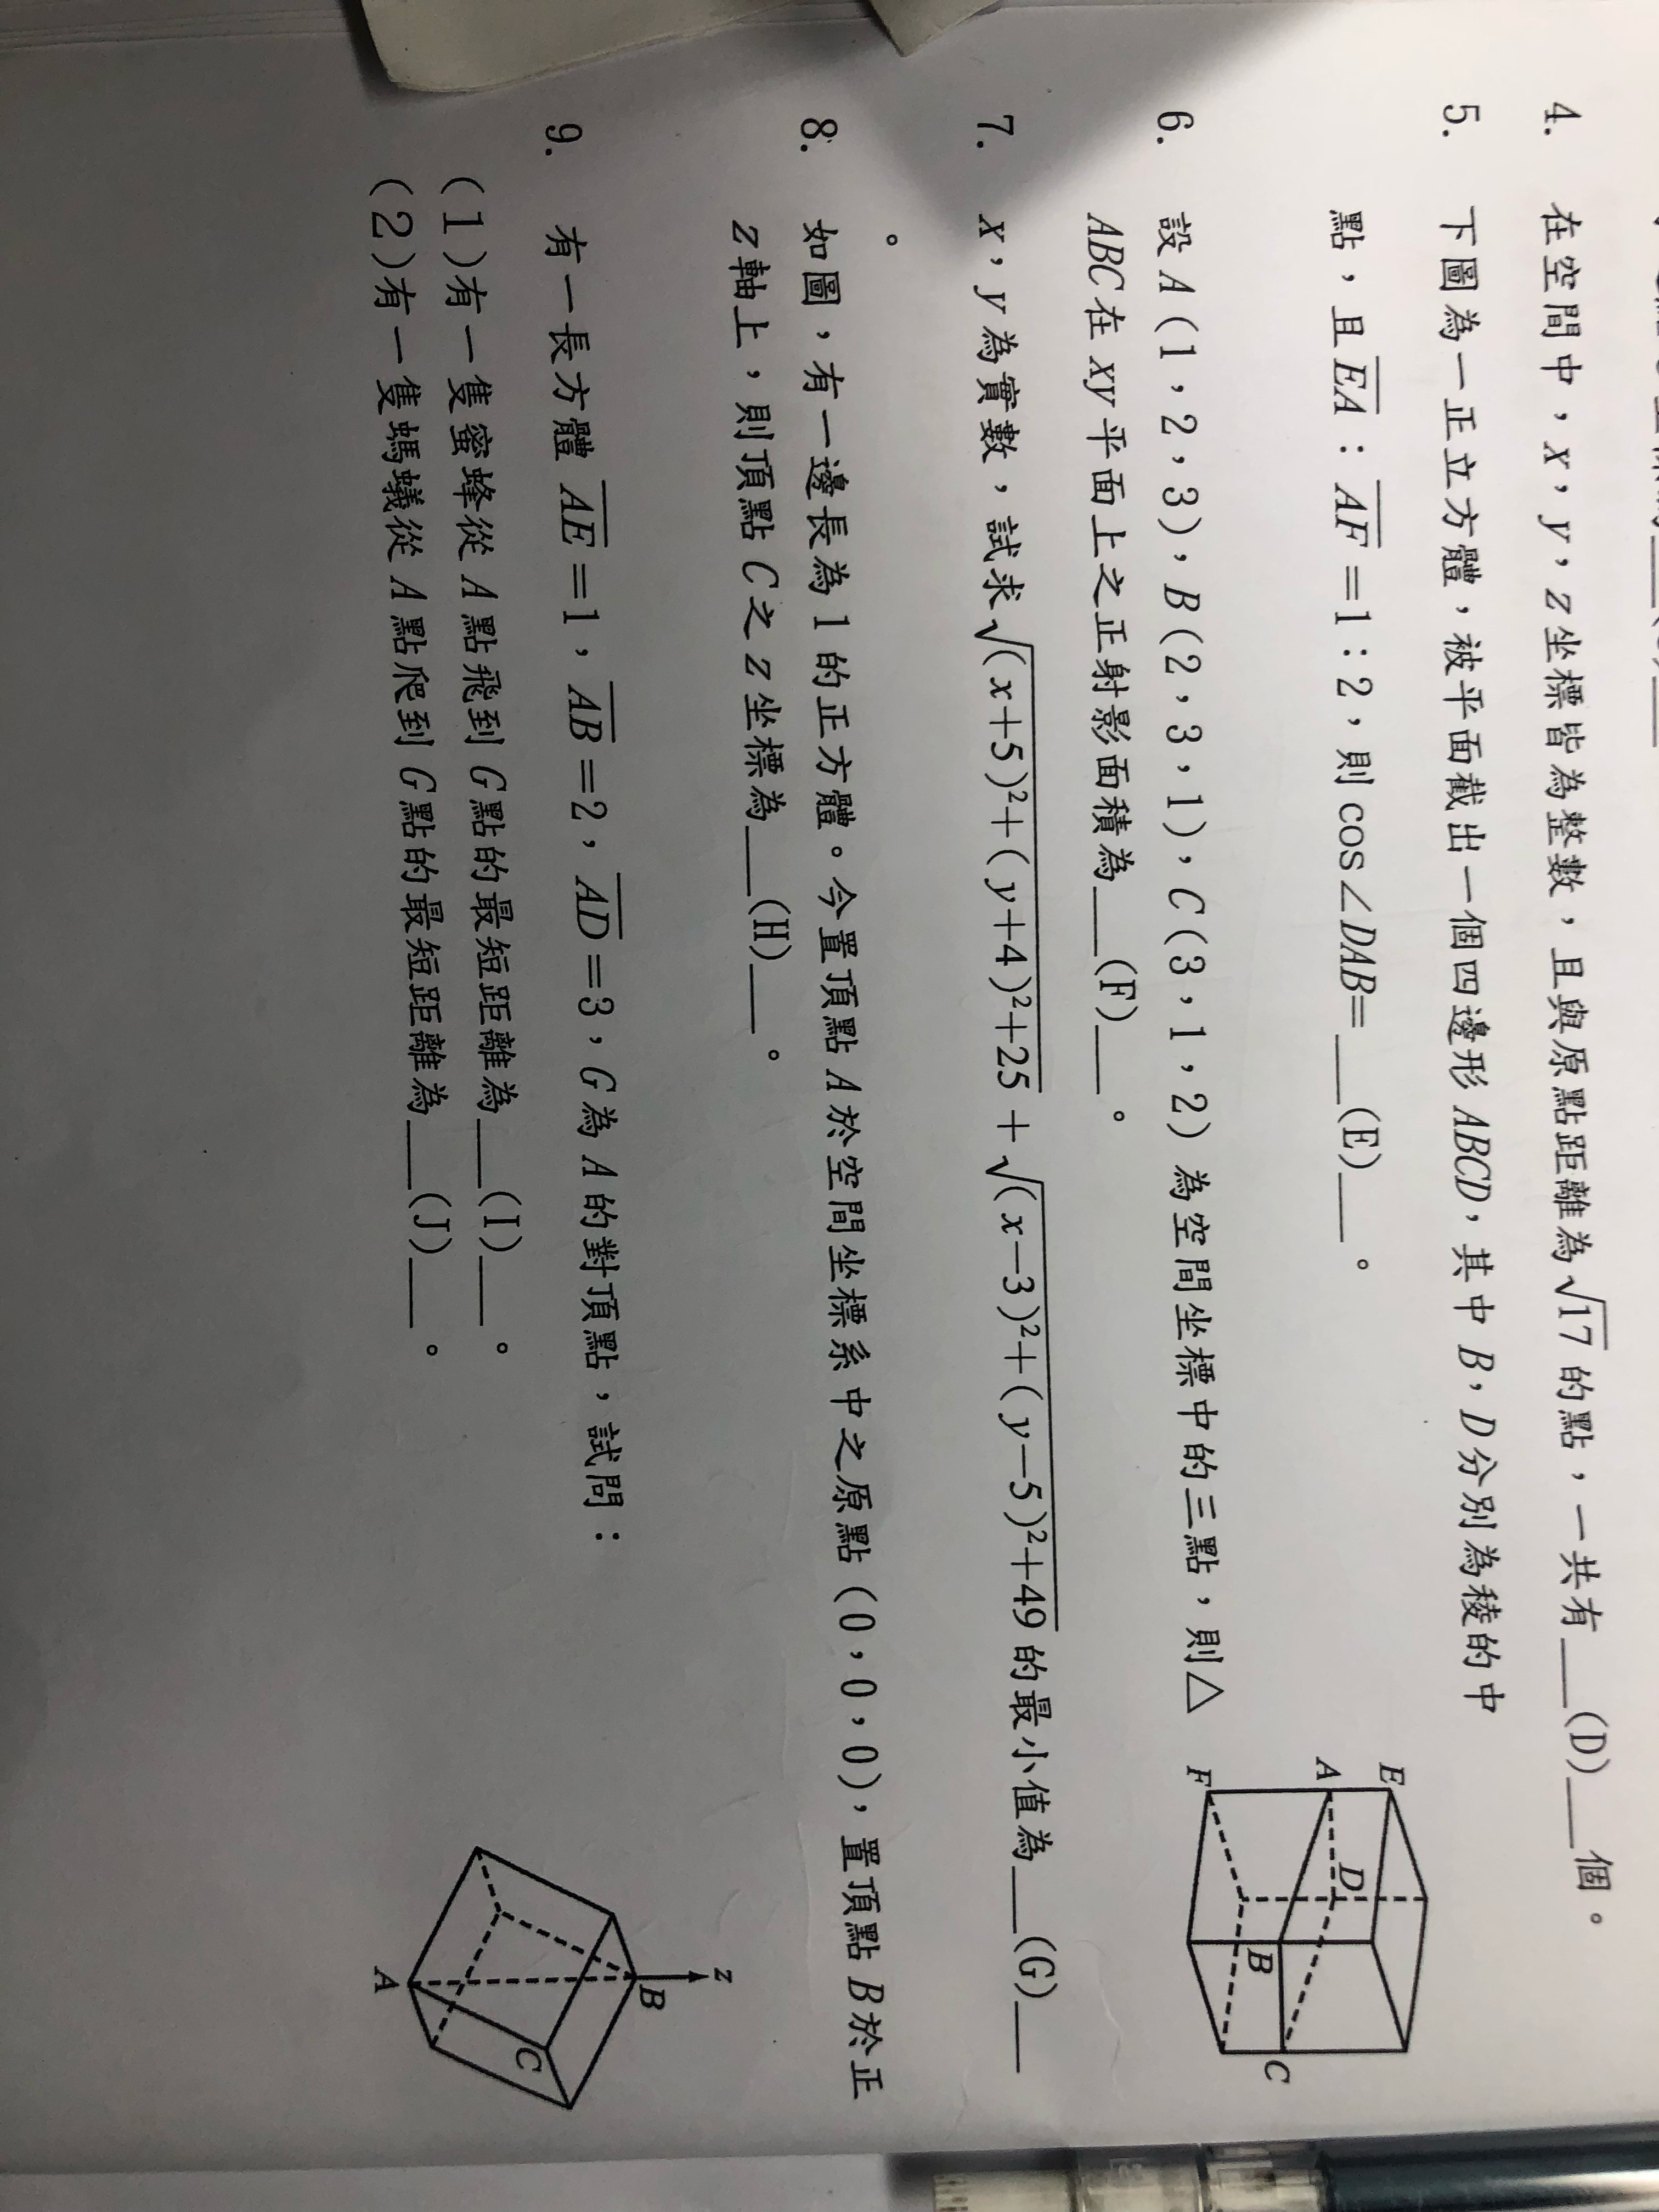 4. 在空間中，x，y，z坐標皆為整數，且與原點距離為√17的點，一共有___(D)___個。
5. 下圖為一正立方體，被平面截出一個四邊形ABCD，其中B，D分別為稜的中
點，且EA：AF=1：2，則cos∠DAB=___(E)___。
E
A
D
B
C
F
6. 設A(1，2，3)，B(2，3，1)，C(3，1，2)為空間坐標中的三點，則△
ABC在xy平面上之正射影面積為___(F)___。
7. x，y為實數，試求√((x+5)²+(y+4)²+25)+√((x−3)²+(y−5)²+49)的最小值為___(G)___
。
8. 如圖，有一邊長為1的正方體。今置頂點A於空間坐標系中之原點(0，0，0)，置頂點B於正
z軸上，則頂點C之z坐標為___(H)___。
z
B
C
A
9. 有一長方體AE=1，AB=2，AD=3，G為A的對頂點，試問：
(1)有一隻蜜蜂從A點飛到G點的最短距離為___(I)___。
(2)有一隻螞蟻從A點爬到G點的最短距離為___(J)___。